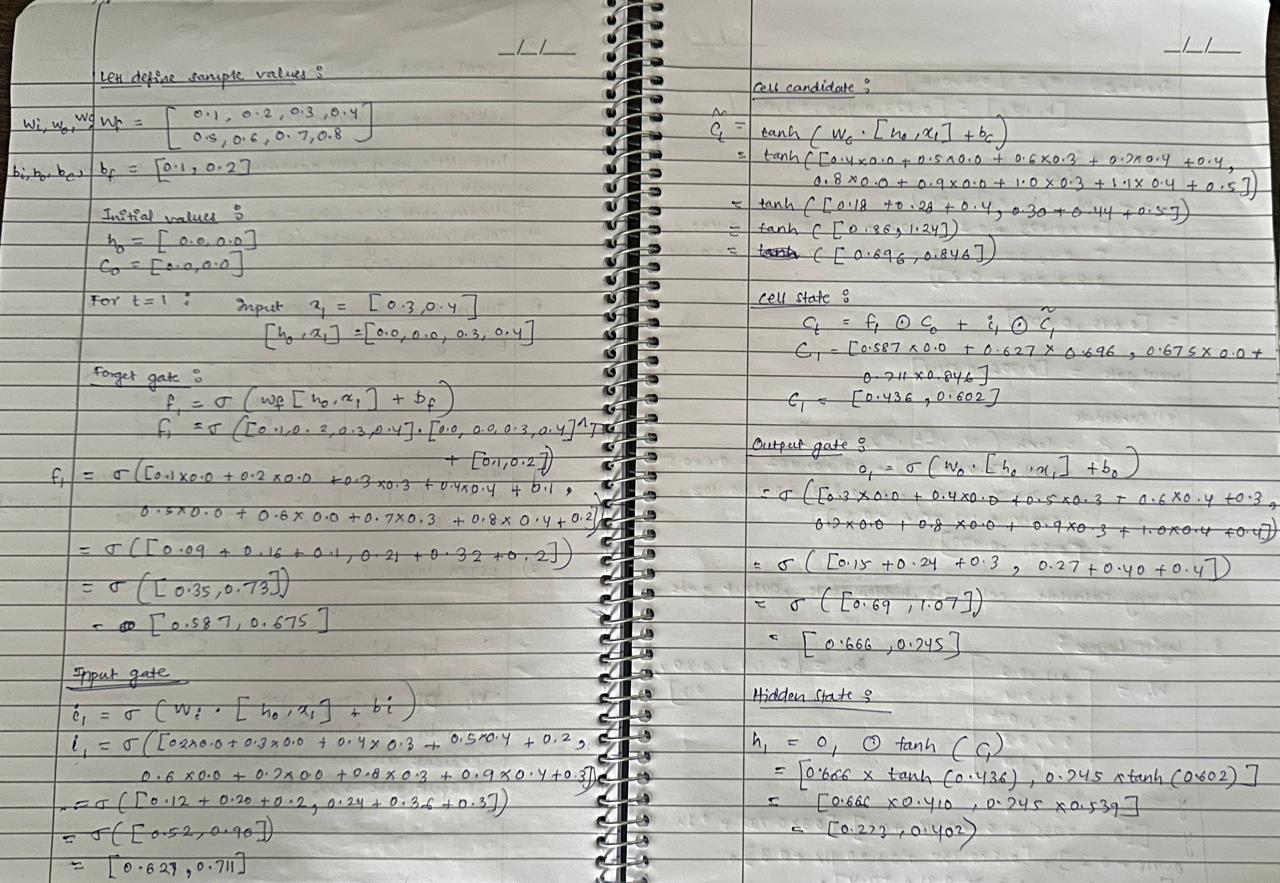 _/_/_
Let's define sample values :
Wi, Wo, Wc, Wf = [ 0.1, 0.2, 0.3, 0.4
0.5, 0.6, 0.7, 0.8 ]
bi, bo, bc, bf = [0.1, 0.2]
Initial values :
h₀ = [0.0, 0.0]
C₀ = [0.0, 0.0]
For t=1 : Input x₁ = [0.3, 0.4]
[h₀, x₁] = [0.0, 0.0, 0.3, 0.4]
Forget gate :
f₁ = σ (Wf [h₀, x₁] + bf)
f₁ = σ ([0.1, 0.2, 0.3, 0.4] · [0.0, 0.0, 0.3, 0.4]^T
+ [0.1, 0.2])
f₁ = σ ([0.1×0.0 + 0.2×0.0 + 0.3×0.3 + 0.4×0.4 + 0.1,
0.5×0.0 + 0.6×0.0 + 0.7×0.3 + 0.8×0.4 + 0.2])
= σ ([0.09 + 0.16 + 0.1, 0.21 + 0.32 + 0.2])
= σ ([0.35, 0.73])
= [0.587, 0.675]
Input gate
i₁ = σ (Wi · [h₀, x₁] + bi)
i₁ = σ ([0.2×0.0 + 0.3×0.0 + 0.4×0.3 + 0.5×0.4 + 0.2,
0.6×0.0 + 0.7×0.0 + 0.8×0.3 + 0.9×0.4 + 0.3])
= σ ([0.12 + 0.20 + 0.2, 0.24 + 0.36 + 0.3])
= σ ([0.52, 0.90])
= [0.627, 0.711]
_/_/_
Cell candidate :
C̃t = tanh (Wc · [h₀, x₁] + bc)
= tanh ([0.4×0.0 + 0.5×0.0 + 0.6×0.3 + 0.7×0.4 + 0.4,
0.8×0.0 + 0.9×0.0 + 1.0×0.3 + 1.1×0.4 + 0.5])
= tanh ([0.18 + 0.28 + 0.4, 0.30 + 0.44 + 0.5])
= tanh ([0.86, 1.24])
= tanh ([0.696, 0.846])
Cell state :
Ct = f₁ ⊙ C₀ + i₁ ⊙ C̃₁
C₁ = [0.587×0.0 + 0.627×0.696, 0.675×0.0 +
0.711×0.846]
C₁ = [0.436, 0.602]
Output gate :
o₁ = σ (Wo · [h₀, x₁] + bo)
= σ ([0.3×0.0 + 0.4×0.0 + 0.5×0.3 + 0.6×0.4 + 0.3,
0.7×0.0 + 0.8×0.0 + 0.9×0.3 + 1.0×0.4 + 0.4])
= σ ([0.15 + 0.24 + 0.3, 0.27 + 0.40 + 0.4])
= σ ([0.69, 1.07])
= [0.666, 0.745]
Hidden state :
h₁ = o₁ ⊙ tanh (C₁)
= [0.666 × tanh (0.436), 0.745 × tanh (0.602)]
= [0.666 × 0.410, 0.745 × 0.539]
= [0.273, 0.402)